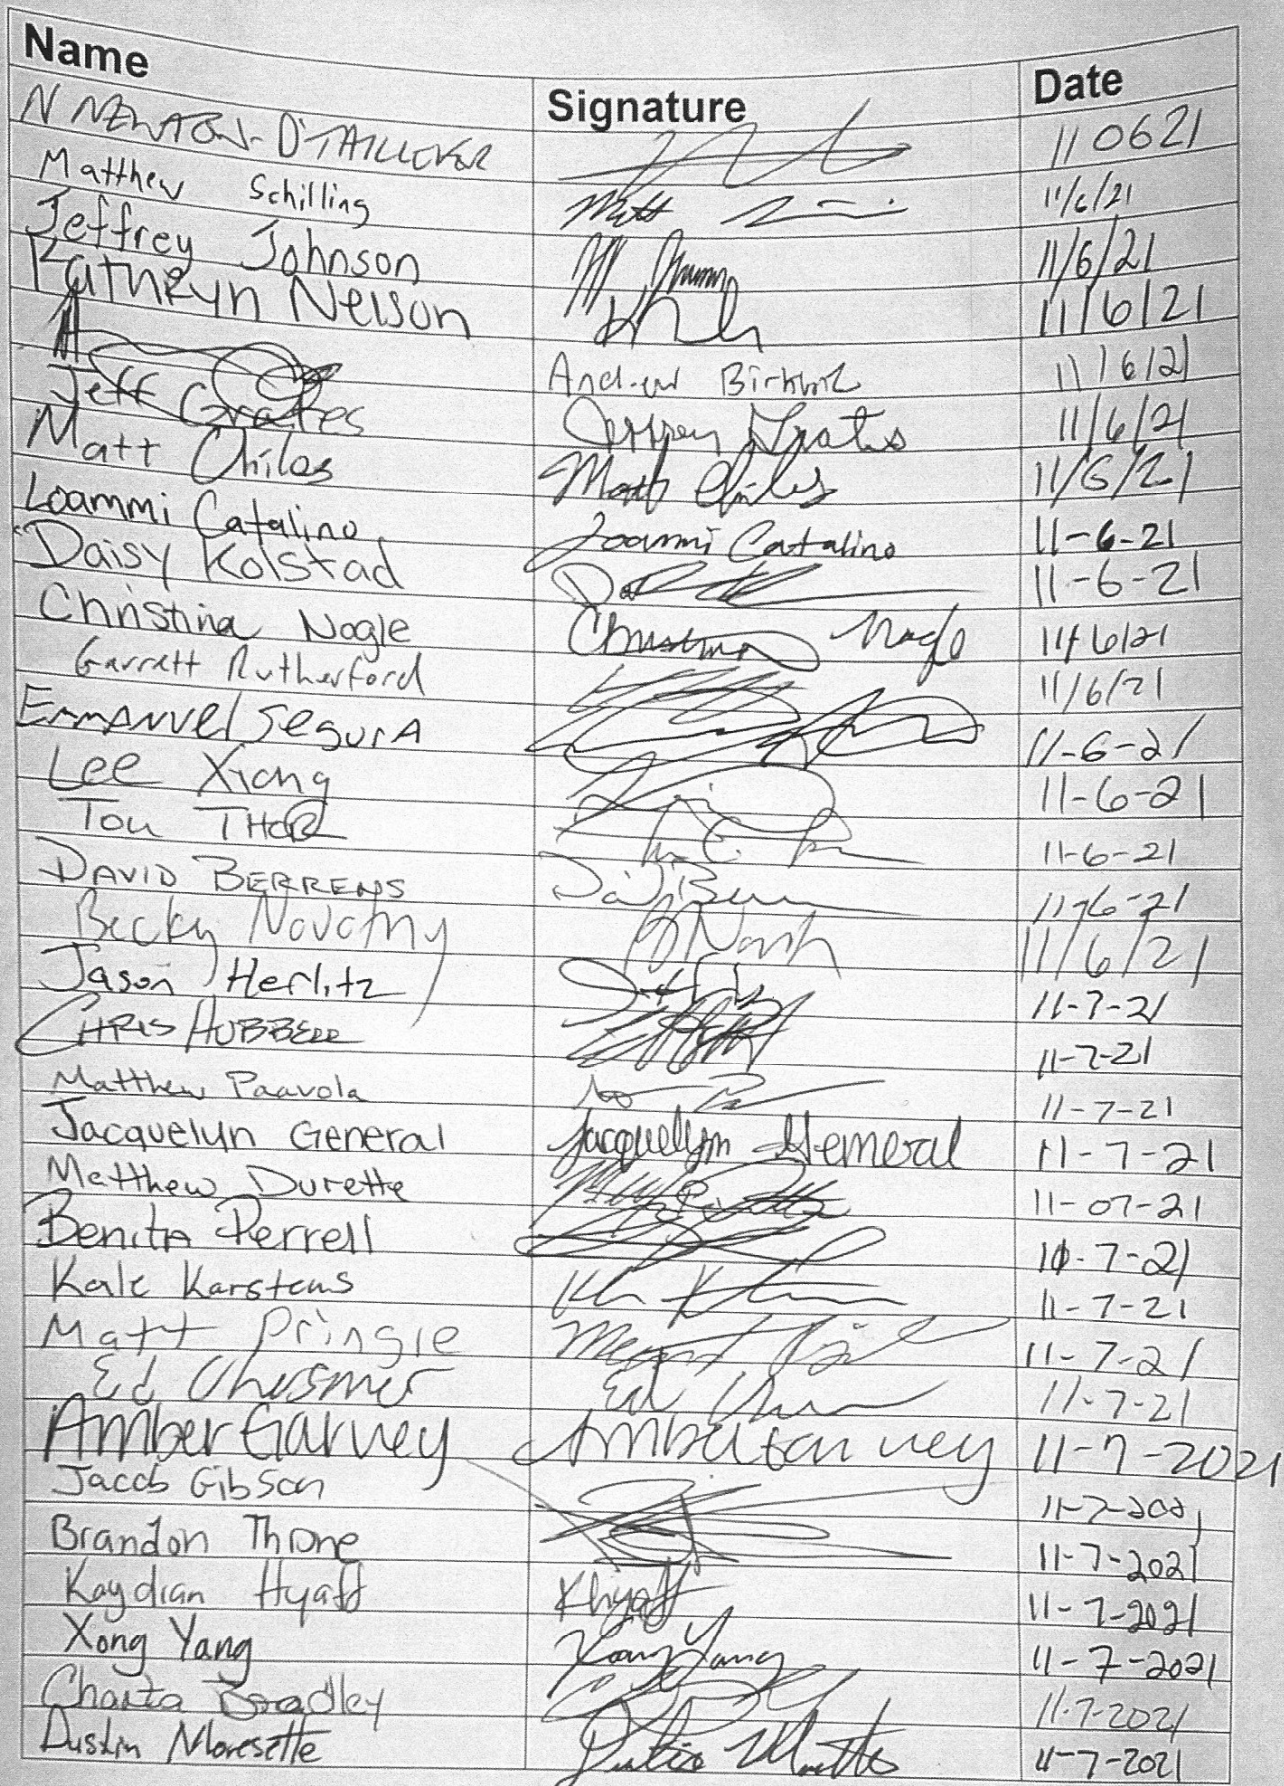 Name Signature Date
N NEWTON-D'TAILLEVER 110621
Matthew Schilling Matt 11/6/21
Jeffrey Johnson 11/6/21
Kathryn Nelson 11/6/21
Andrew 11/6/21
Jeff Grates Jeffrey Grates 11/6/21
Matt Chiles Matt Chiles 11/6/21
Loammi Catalino Loammi Catalino 11-6-21
Daisy Kolstad 11-6-21
Christina Nogle Christina Nogle 11/6/21
Garrett Rutherford 11/6/21
EmmANuel SegurA 11-6-21
Lee Xiong 11-6-21
Tou THOR 11-6-21
DAVID BERRENS 11-6-21
Becky Novotny 11/6/21
Jason Herlitz 11-7-21
CHRIS HUBBELL 11-7-21
Matthew Paavola 11-7-21
Jacquelyn General Jacquelyn General 11-7-21
Matthew Durette 11-07-21
Benita Perrell 11-7-21
Kale Karstens 11-7-21
Matt Pringle 11-7-21
Ed Ed 11-7-21
Amber Garvey Amber Garvey 11-7-2021
Jacob Gibson 11-7-2021
Brandon Thione 11-7-2021
Kaydian Hyatt KHyatt 11-7-2021
Xong Yang Xong Yang 11-7-2021
Bradley 11-7-2021
Dustin Moresette 11-7-2021